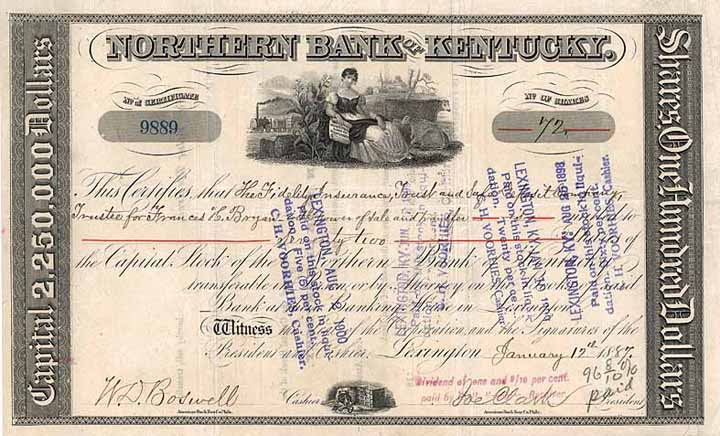 NORTHERN BANK OF KENTUCKY.
No. of CERTIFICATE
9889
No. OF SHARES
72
Capital 2,250,000 Dollars
Shares, One Hundred Dollars
This Certifies that The Fidelity Insurance, Trust and Safe Deposit Company,
Trustee for Frances C. power of sale and transfer to
Seventy two of
the Capital Stock of the Northern Bank of Kentucky
transferable in person or by Attorney on the books of said
Bank at the Banking House in Lexington
Witness the of the Corporation and the Signatures of the
President and Cashier. Lexington January 12th 1887.
W.D. Boswell Cashier President
American Bank Note Co. Phila.
American Bank Note Co. Phila.
LEXINGTON, AUG 1900
Paid on this stock in liqui-
dation, Five (5) per cent.
C. H. VOORHIES, Cashier.
LEXINGTON, KY.
Paid on this stock in liqui-
dation, Twenty per cent.
C. H. VOORHIES, Cashier.
LEXINGTON, KY. AUG 1898
Paid on this stock in liqui-
dation, per cent.
C. H. VOORHIES, Cashier.
Dividend of one and 8/10 per cent.
paid by
96 8/10 %
paid